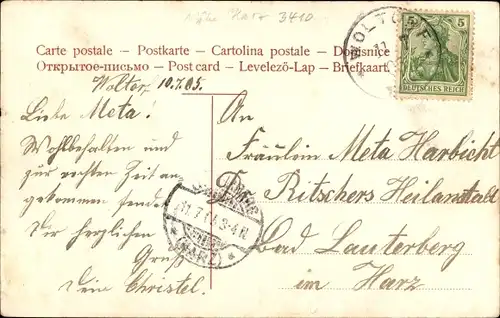 Harz 3410
Carte postale – Postkarte – Cartolina postale – Dopisnice
Открытое-письмо – Post card – Levelező-Lap – Briefkaart
5 5
DEUTSCHES REICH
WOLTORF
Woltorf 10.7.05.
Liebe Meta!
Wohlbehalten und
zur rechten Zeit an-
gekommen sendet
Dir herzlichen
Gruß
Dein Christel.
11.7.
(HARZ)
An
Fräulein Meta Harbicht
Dr. Ritschers Heilanstalt
Bad Lauterberg
im Harz